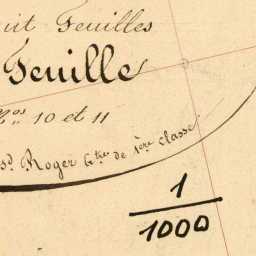 Feuilles
Feuille
Nos 10 et 11
Roger Gtre de 1ère classe
1
1000